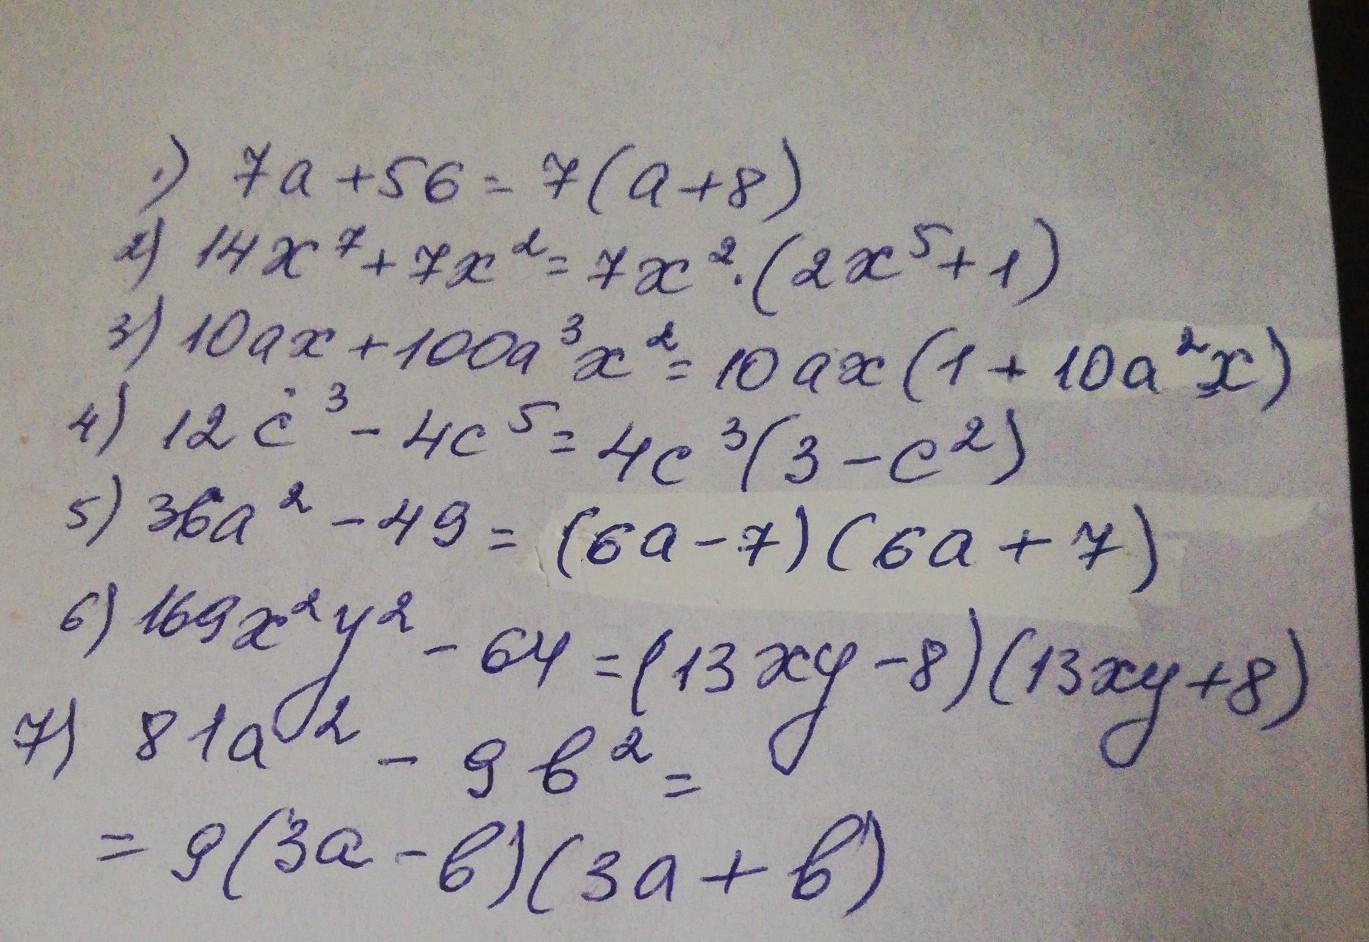 1) 7a + 56 = 7(a + 8)
2) 14x⁷ + 7x² = 7x² · (2x⁵ + 1)
3) 10ax + 100a³x² = 10ax(1 + 10a²x)
4) 12c³ - 4c⁵ = 4c³(3 - c²)
5) 36a² - 49 = (6a - 7)(6a + 7)
6) 169x²y² - 64 = (13xy - 8)(13xy + 8)
7) 81a² - 9b² =
= 9(3a - b)(3a + b)